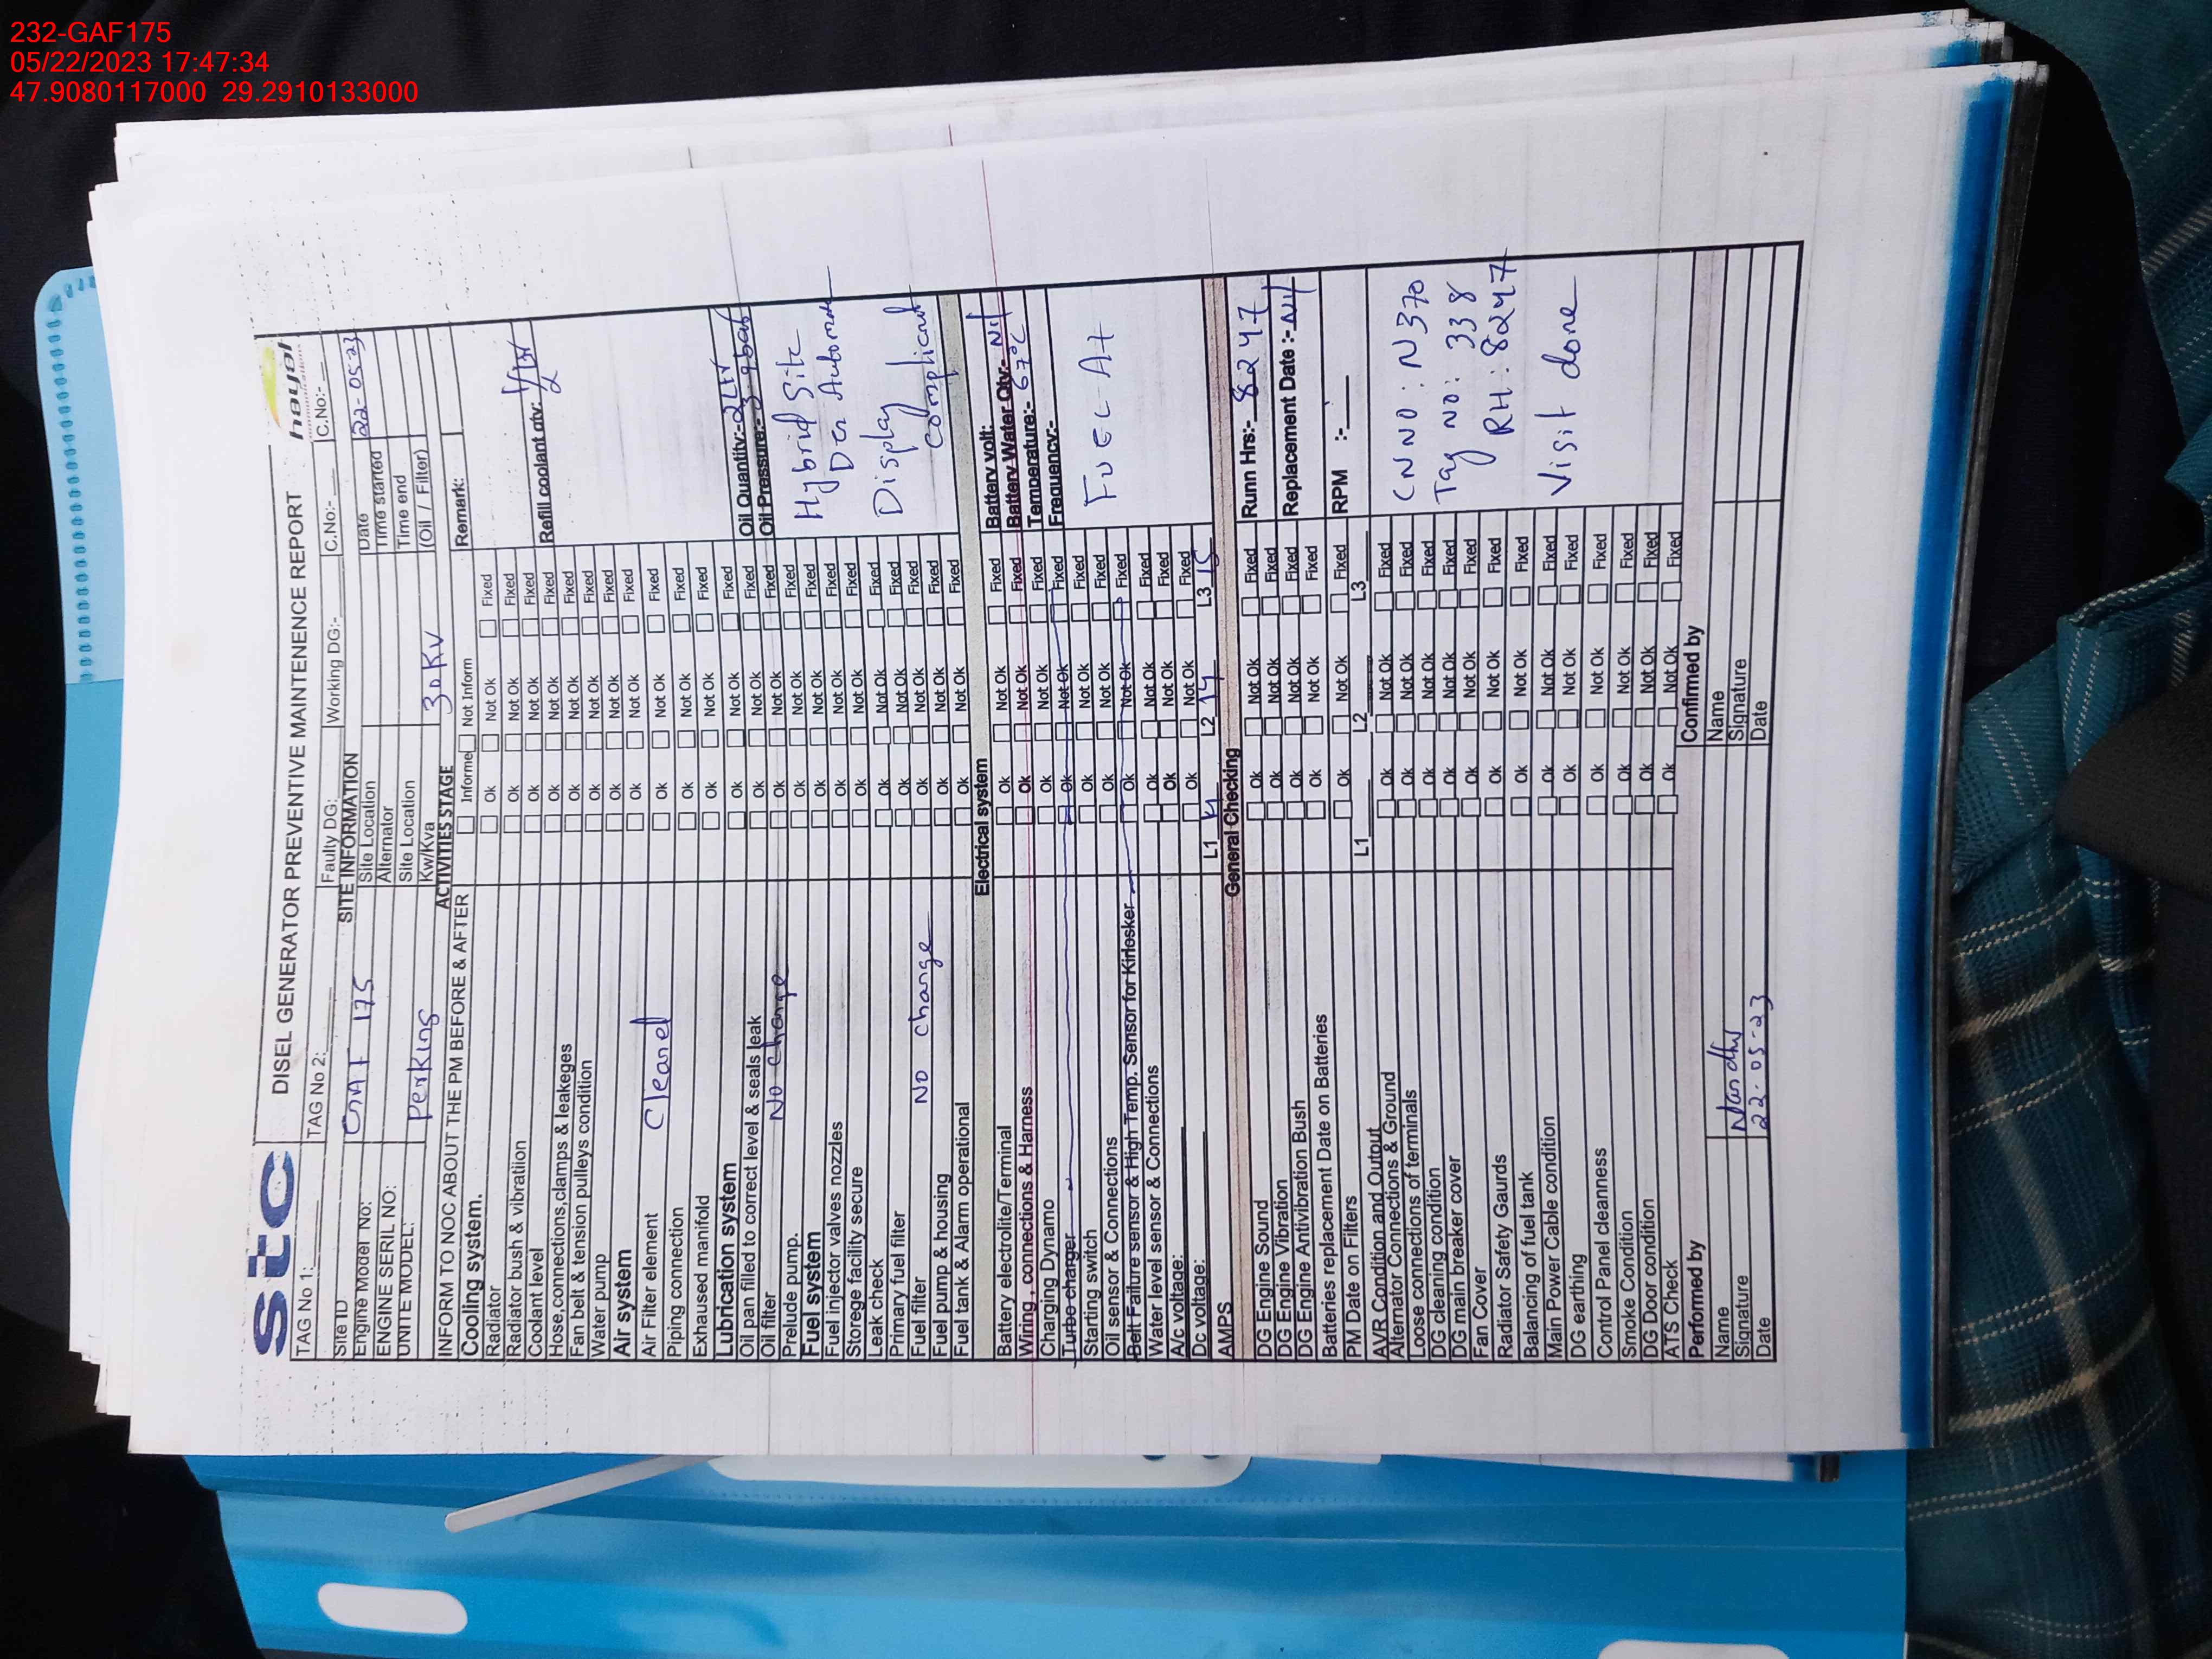 232-GAF175
05/22/2023 17:47:34
47.9080117000 29.2910133000
stc
DISEL GENERATOR PREVENTIVE MAINTENENCE REPORT
hayel
TAG No 1:
TAG No 2:
Faulty DG:
Working DG:-
C.No:-
C.No:-
SITE INFORMATION
Site ID GAF 175
Site Location
Date 22-05-23
Engine Model No:
Alternator
Time started
ENGINE SERIL NO:
Site Location
Time end
UNITE MODEL: Perkins
Kw/Kva 30KV
(Oil / Filter)
ACTIVITIES STAGE
INFORM TO NOC ABOUT THE PM BEFORE & AFTER Informe Not Inform Remark:
Cooling system.
Radiator Ok Not Ok Fixed
Radiator bush & vibratiion Ok Not Ok Fixed
Coolant level Ok Not Ok Fixed Refill coolant qty:
Hose,connections,clamps & leakeges Ok Not Ok Fixed
Fan belt & tension pulleys condition Ok Not Ok Fixed
Water pump Ok Not Ok Fixed
Air system Ok Not Ok Fixed
Air Filter element Cleaned Ok Not Ok Fixed
Piping connection Ok Not Ok Fixed
Exhaused manifold Ok Not Ok Fixed
Lubrication system Ok Not Ok Fixed
Oil pan filled to correct level & seals leak Ok Not Ok Fixed Oil Quantity:- 2Ltr
Oil filter No change Ok Not Ok Fixed Oil Pressure:-
Prelude pump. Ok Not Ok Fixed
Fuel system Ok Not Ok Fixed
Hybrid Site
Fuel injector valves nozzles Ok Not Ok Fixed
Storege facility secure Ok Not Ok Fixed
Leak check Ok Not Ok Fixed
Display
Primary fuel filter Ok Not Ok Fixed
Fuel filter No change Ok Not Ok Fixed
Fuel pump & housing Ok Not Ok Fixed
Fuel tank & Alarm operational Ok Not Ok Fixed
Electrical system
Battery electrolite/Terminal Ok Not Ok Fixed Battery volt:
Wiring , connections & Harness Ok Not Ok Fixed Battery Water Qty:- Nil
Charging Dynamo Ok Not Ok Fixed Temperature:- 67°C
Turbo charger Ok Not Ok Fixed Frequency:-
Starting switch Ok Not Ok Fixed
Oil sensor & Connections Ok Not Ok Fixed
Belt Failure sensor & High Temp. Sensor for Kirlosker Ok Not Ok Fixed
Water level sensor & Connections Ok Not Ok Fixed
A/c voltage: Ok Not Ok Fixed
Dc voltage: Ok Not Ok Fixed
AMPS L1 L2 14 L3 15
General Checking
DG Engine Sound Ok Not Ok Fixed Runn Hrs:- 8247
DG Engine Vibration Ok Not Ok Fixed
DG Engine Antivibration Bush Ok Not Ok Fixed Replacement Date :- Nil
Batteries replacement Date on Batteries Ok Not Ok Fixed
PM Date on Filters Ok Not Ok Fixed RPM :-
L1 L2 L3
AVR Condition and Output Ok Not Ok Fixed
Alternator Connections & Ground Ok Not Ok Fixed CNNO: N370
Loose connections of terminals Ok Not Ok Fixed
DG cleaning condition Ok Not Ok Fixed Tag NO: 338
DG main breaker cover Ok Not Ok Fixed
Fan Cover Ok Not Ok Fixed RH: 8247
Radiator Safety Gaurds Ok Not Ok Fixed
Balancing of fuel tank Ok Not Ok Fixed
Main Power Cable condition Ok Not Ok Fixed Visit done
DG earthing Ok Not Ok Fixed
Control Panel cleanness Ok Not Ok Fixed
Smoke Condition Ok Not Ok Fixed
DG Door condition Ok Not Ok Fixed
ATS Check Ok Not Ok Fixed
Performed by Confirmed by
Name Name
Signature Signature
Date 22-05-23 Date